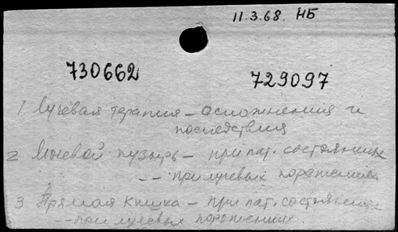 11.3.68. НБ
730662
729097
1 Лучевая терапия - осложнения и
последствия
2 Мочевой пузырь - при пат. состояниях
-- при лучевых поражениях
3 Прямая кишка - при пат. состояниях
-- при лучевых поражениях.